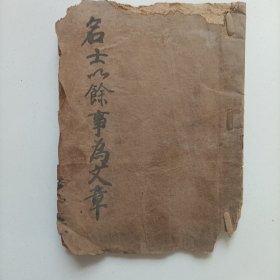 名士以餘事為文章